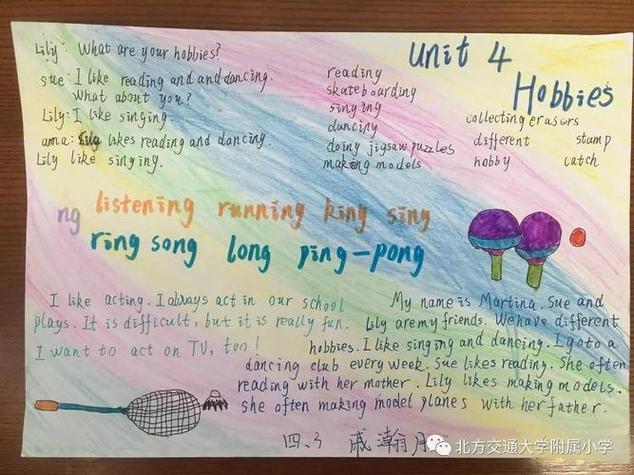 Unit 4
Hobbies
Lily: What are your hobbies?
Sue: I like reading and and dancing.
What about you?
Lily: I like singing.
ama: likes reading and dancing.
Lily like singing.
reading
skateboarding
singing
dancing
doing jigsaw puzzles
making models
collecting erasors
different stamp
hobby catch
ng listening running king sing
ring song long ping-pong
I like acting. I always act in our school
plays. It is difficult, but it is really fun.
I want to act on TV, too!
My name is Martina. Sue and
Lily are my friends. We have different
hobbies. I like singing and dancing. I go to a
dancing club every week. Sue likes reading. She often
reading with her mother. Lily likes making models.
She often making model planes with her father.
四、3 戚瀚月
北方交通大学附属小学